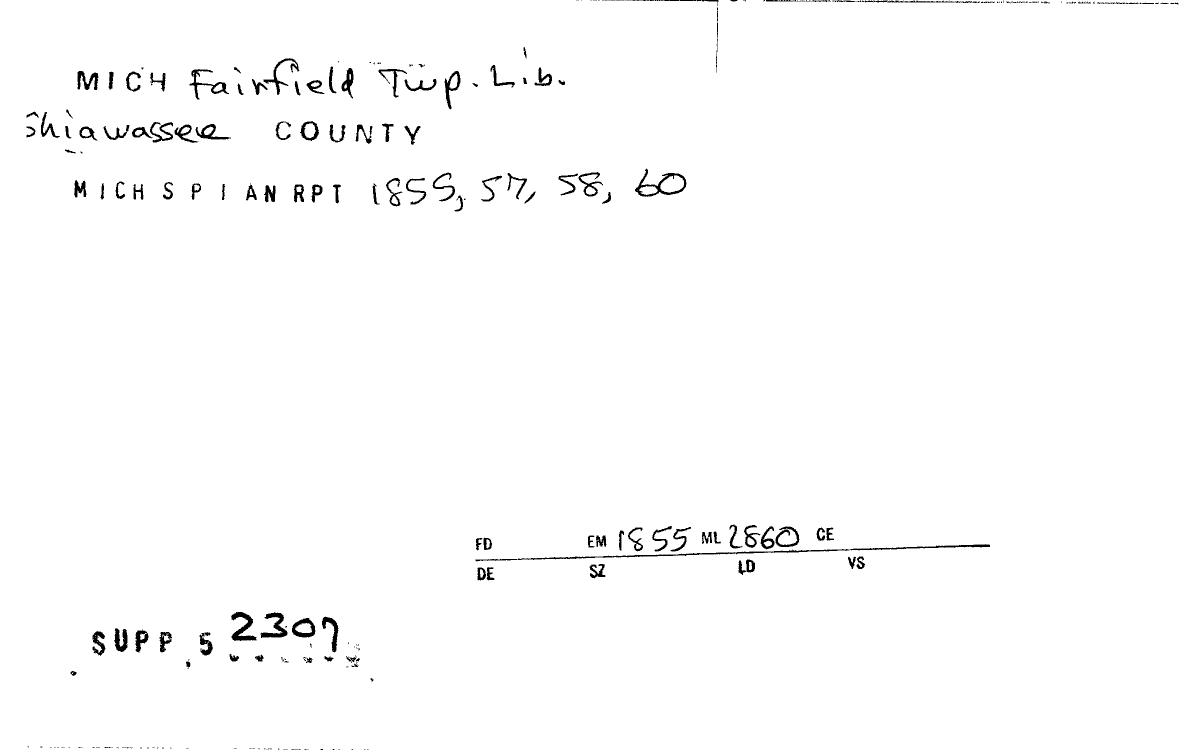 MICH Fairfield Twp. Lib.
Shiawassee COUNTY
MICH S P I AN RPT 1855, 57, 58, 60
FD EM 1855 ML 2860 CE
DE SZ LD VS
SUPP 5 2307